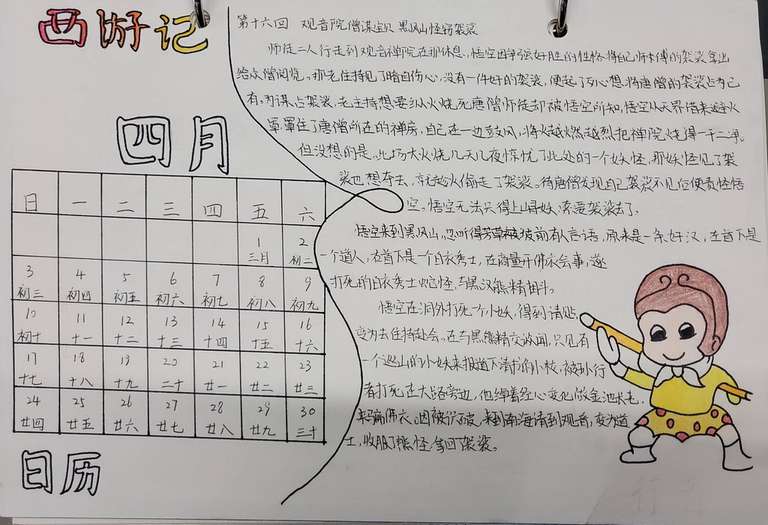 西游记
四月
日 一 二 三 四 五 六
1 2
三月 初二
3 4 5 6 7 8 9
初三 初四 初五 初六 初七 初八 初九
10 11 12 13 14 15 16
初十 十一 十二 十三 十四 十五 十六
17 18 19 20 21 22 23
十七 十八 十九 二十 廿一 廿二 廿三
24 25 26 27 28 29 30
廿四 廿五 廿六 廿七 廿八 廿九 三十
日历
第十六回 观音院僧谋宝贝 黑风山怪窃袈裟
师徒二人行走到观音禅院在那休息,悟空因争强好胜的性格,将自己师傅的袈裟拿出
给众僧阅览。那老住持见了暗自伤心,没有一件好的袈裟,便起了歹心想将唐僧的袈裟占为己
有,为谋占袈裟,老主持想要纵火烧死唐僧师徒却被悟空所知,悟空从天界借来避火
罩,罩住了唐僧所在的禅房,自己在一边鼓风,将火越燃越烈把禅院烧得一干二净。
但没想的是,此场大火烧几天几夜惊忧了此处的一个妖怪,那妖怪见了袈
裟也想夺去,就趁火偷走了袈裟。待唐僧发现自己袈裟不见后便责怪悟
空,悟空无法只得上山寻妖,索要袈裟去了。
悟空来到黑风山,忽听得芳草坡前有人言语,原来是一条好汉,左首下是
一个道人,右首下是一个白衣秀士,在商量开佛衣会事,遂
打死的白衣秀士蛇怪,与黑汉熊精相斗。
悟空在洞外打死一小妖,得到请贴,
变为老住持赴会。正与黑熊精交谈间,只见有
一个巡山的小妖来报道下请书的小校,被孙行
者打死在大路旁边,他绰着经心变化做金池长老,
来骗佛衣。因被识破,来到南海请到观音,变为道
士,收服了熊怪,拿回了袈裟。